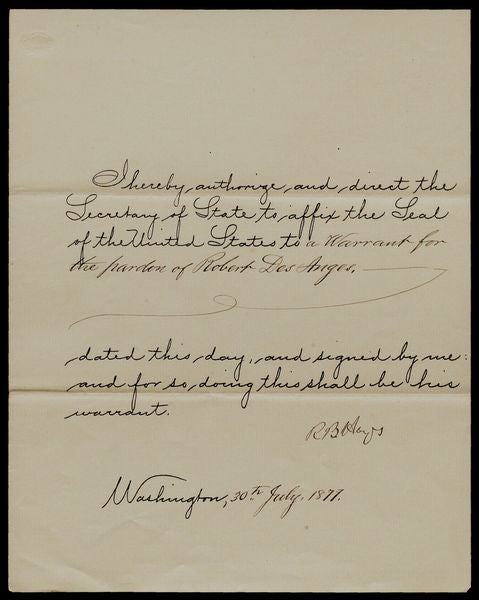 I hereby authorize and direct the
Secretary of State to affix the Seal
of the United States to a Warrant for
the pardon of Robert Des Anges.
dated this day, and signed by me:
and for so doing this shall be his
warrant.
R B Hayes
Washington, 30th July, 1877.